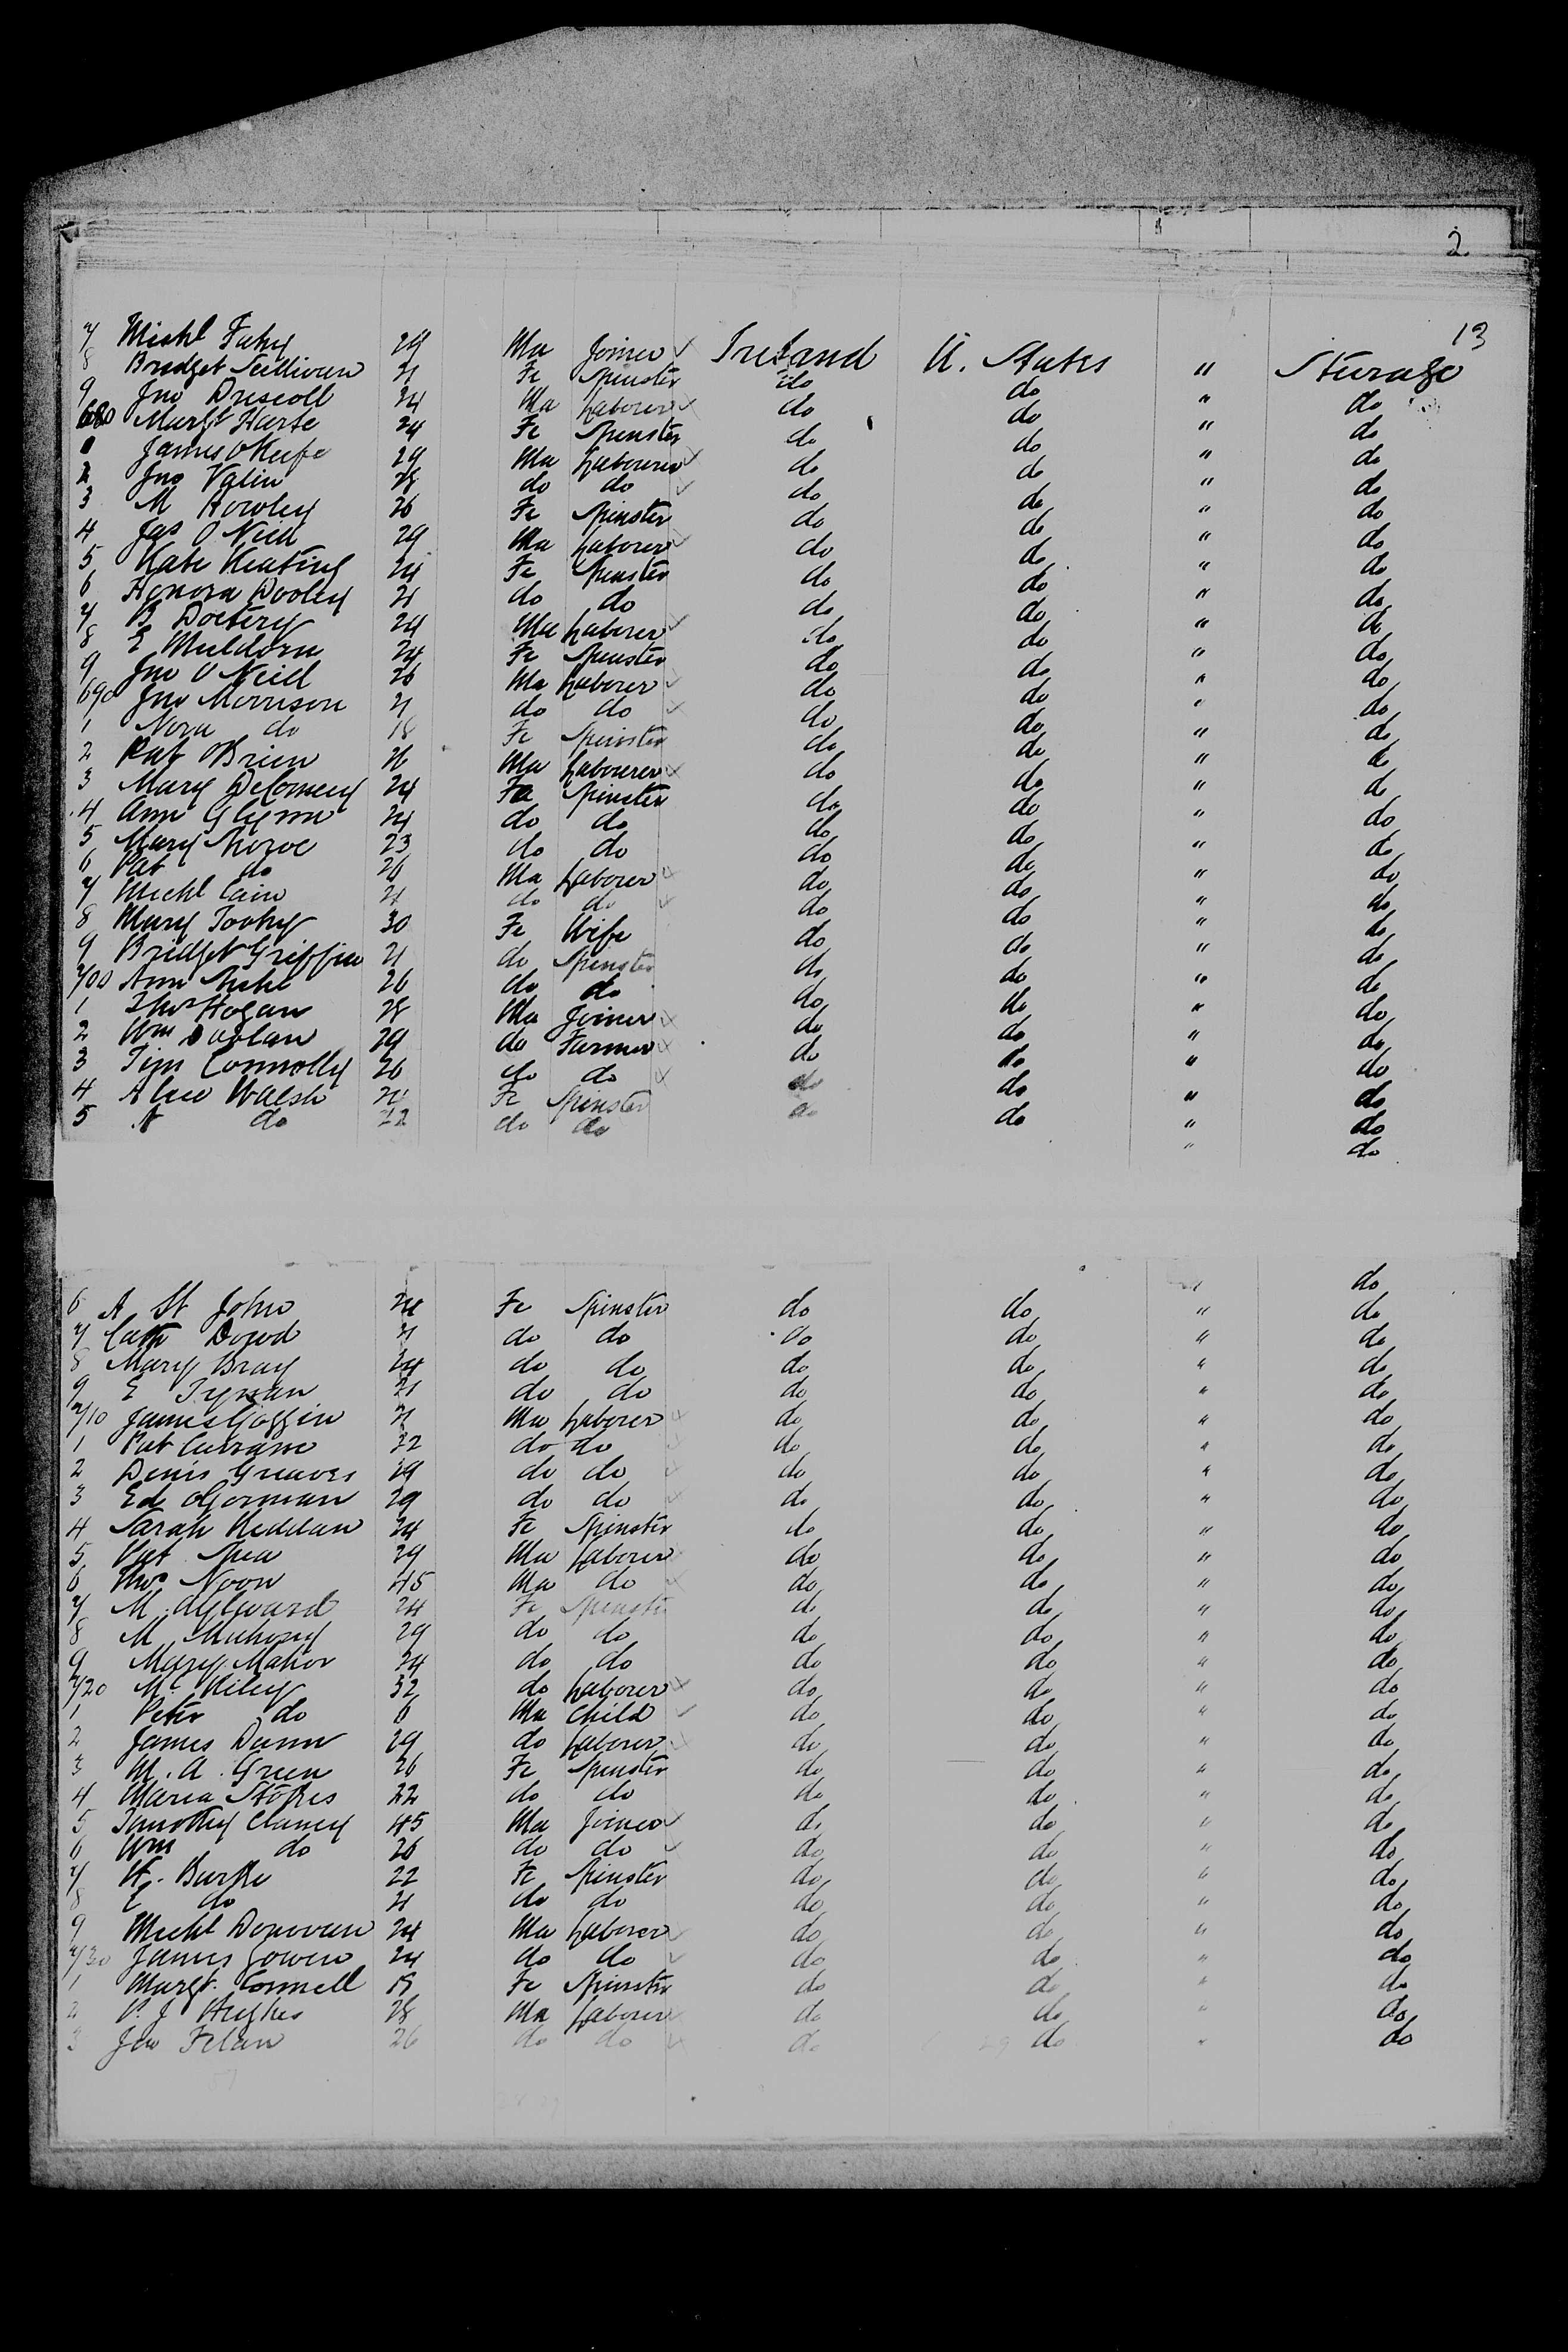 2
13
7 Michl Fahy 29 Ma Joiner Ireland U. States " Steerage
8 Bridget Sullivan 21 Fe Spinster do do " do
9 Jno Driscoll 24 Ma Laborer do do " do
680 Margt Harte 24 Fe Spinster do do " do
1 James OKeefe 29 Ma Labourer do do " do
2 Jno Valin 28 do do do do " do
3 M Howley 26 Fe Spinster do do " do
4 Jas O Neill 29 Ma Laborer do do " do
5 Kate Keating 24 Fe Spinster do do " do
6 Honora Dooley 21 do do do do " do
7 B Doctery 24 Ma Laborer do do " do
8 E Muldorn 24 Fe Spinster do do " do
9 Jno O Neill 26 Ma Laborer do do " do
690 Jno Morrison 21 do do do do " do
1 Nora do 18 Fe Spinster do do " do
2 Pat OBrien 26 Ma Labourer do do " do
3 Mary Delomery 24 Fe Spinster do do " do
4 Ann Glynn 24 do do do do " do
5 Mary 23 do do do do " do
6 Pat do 26 Ma Laborer do do " do
7 Michl Cain 21 do do do do " do
8 Mary Toohy 30 Fe Wife do do " do
9 Bridget Griffin 21 do Spinster do do " do
700 Ann 26 do do do do " do
1 Thos Hogan 28 Ma Joiner do do " do
2 Wm 29 do Farmer do do " do
3 Tim Connolly 26 do do do do " do
4 Alice Walsh 24 Fe Spinster do do " do
5 N do 22 do do do do " do
" do
do
6 A St John 24 Fe Spinster do do " do
7 Cath Dowd 21 do do do do " do
8 Mary Bray 24 do do do do " do
9 E Tynan 21 do do do do " do
710 James Goggin 21 Ma Laborer do do " do
1 Pat Currane 22 do do do do " do
2 Denis Greaves 29 do do do do " do
3 Ed OGorman 29 do do do do " do
4 Sarah Heddan 24 Fe Spinster do do " do
5 Pat Shea 29 Ma Laborer do do " do
6 Thos Noon 45 Ma do do do " do
7 M Aylward 24 Fe Spinster do do " do
8 M Mahony 29 do do do do " do
9 Mary Mahor 24 do do do do " do
720 Mc Kiley 32 do Laborer do do " do
1 Peter do 6 Ma Child do do " do
2 James Dunn 29 do Laborer do do " do
3 M. A. Green 26 Fe Spinster do do " do
4 Maria Stokes 22 do do do do " do
5 Timothy Clancy 45 Ma Joiner do do " do
6 Wm do 26 do do do do " do
7 H. Burke 22 Fe Spinster do do " do
8 E do 21 do do do do " do
9 Michl Donovan 24 Ma Laborer do do " do
730 James Gowen 24 do do do do " do
1 Margt. Connell 19 Fe Spinster do do " do
2 P. J Hughes 28 Ma Laborer do do " do
3 Jno Felan 26 do do do do " do